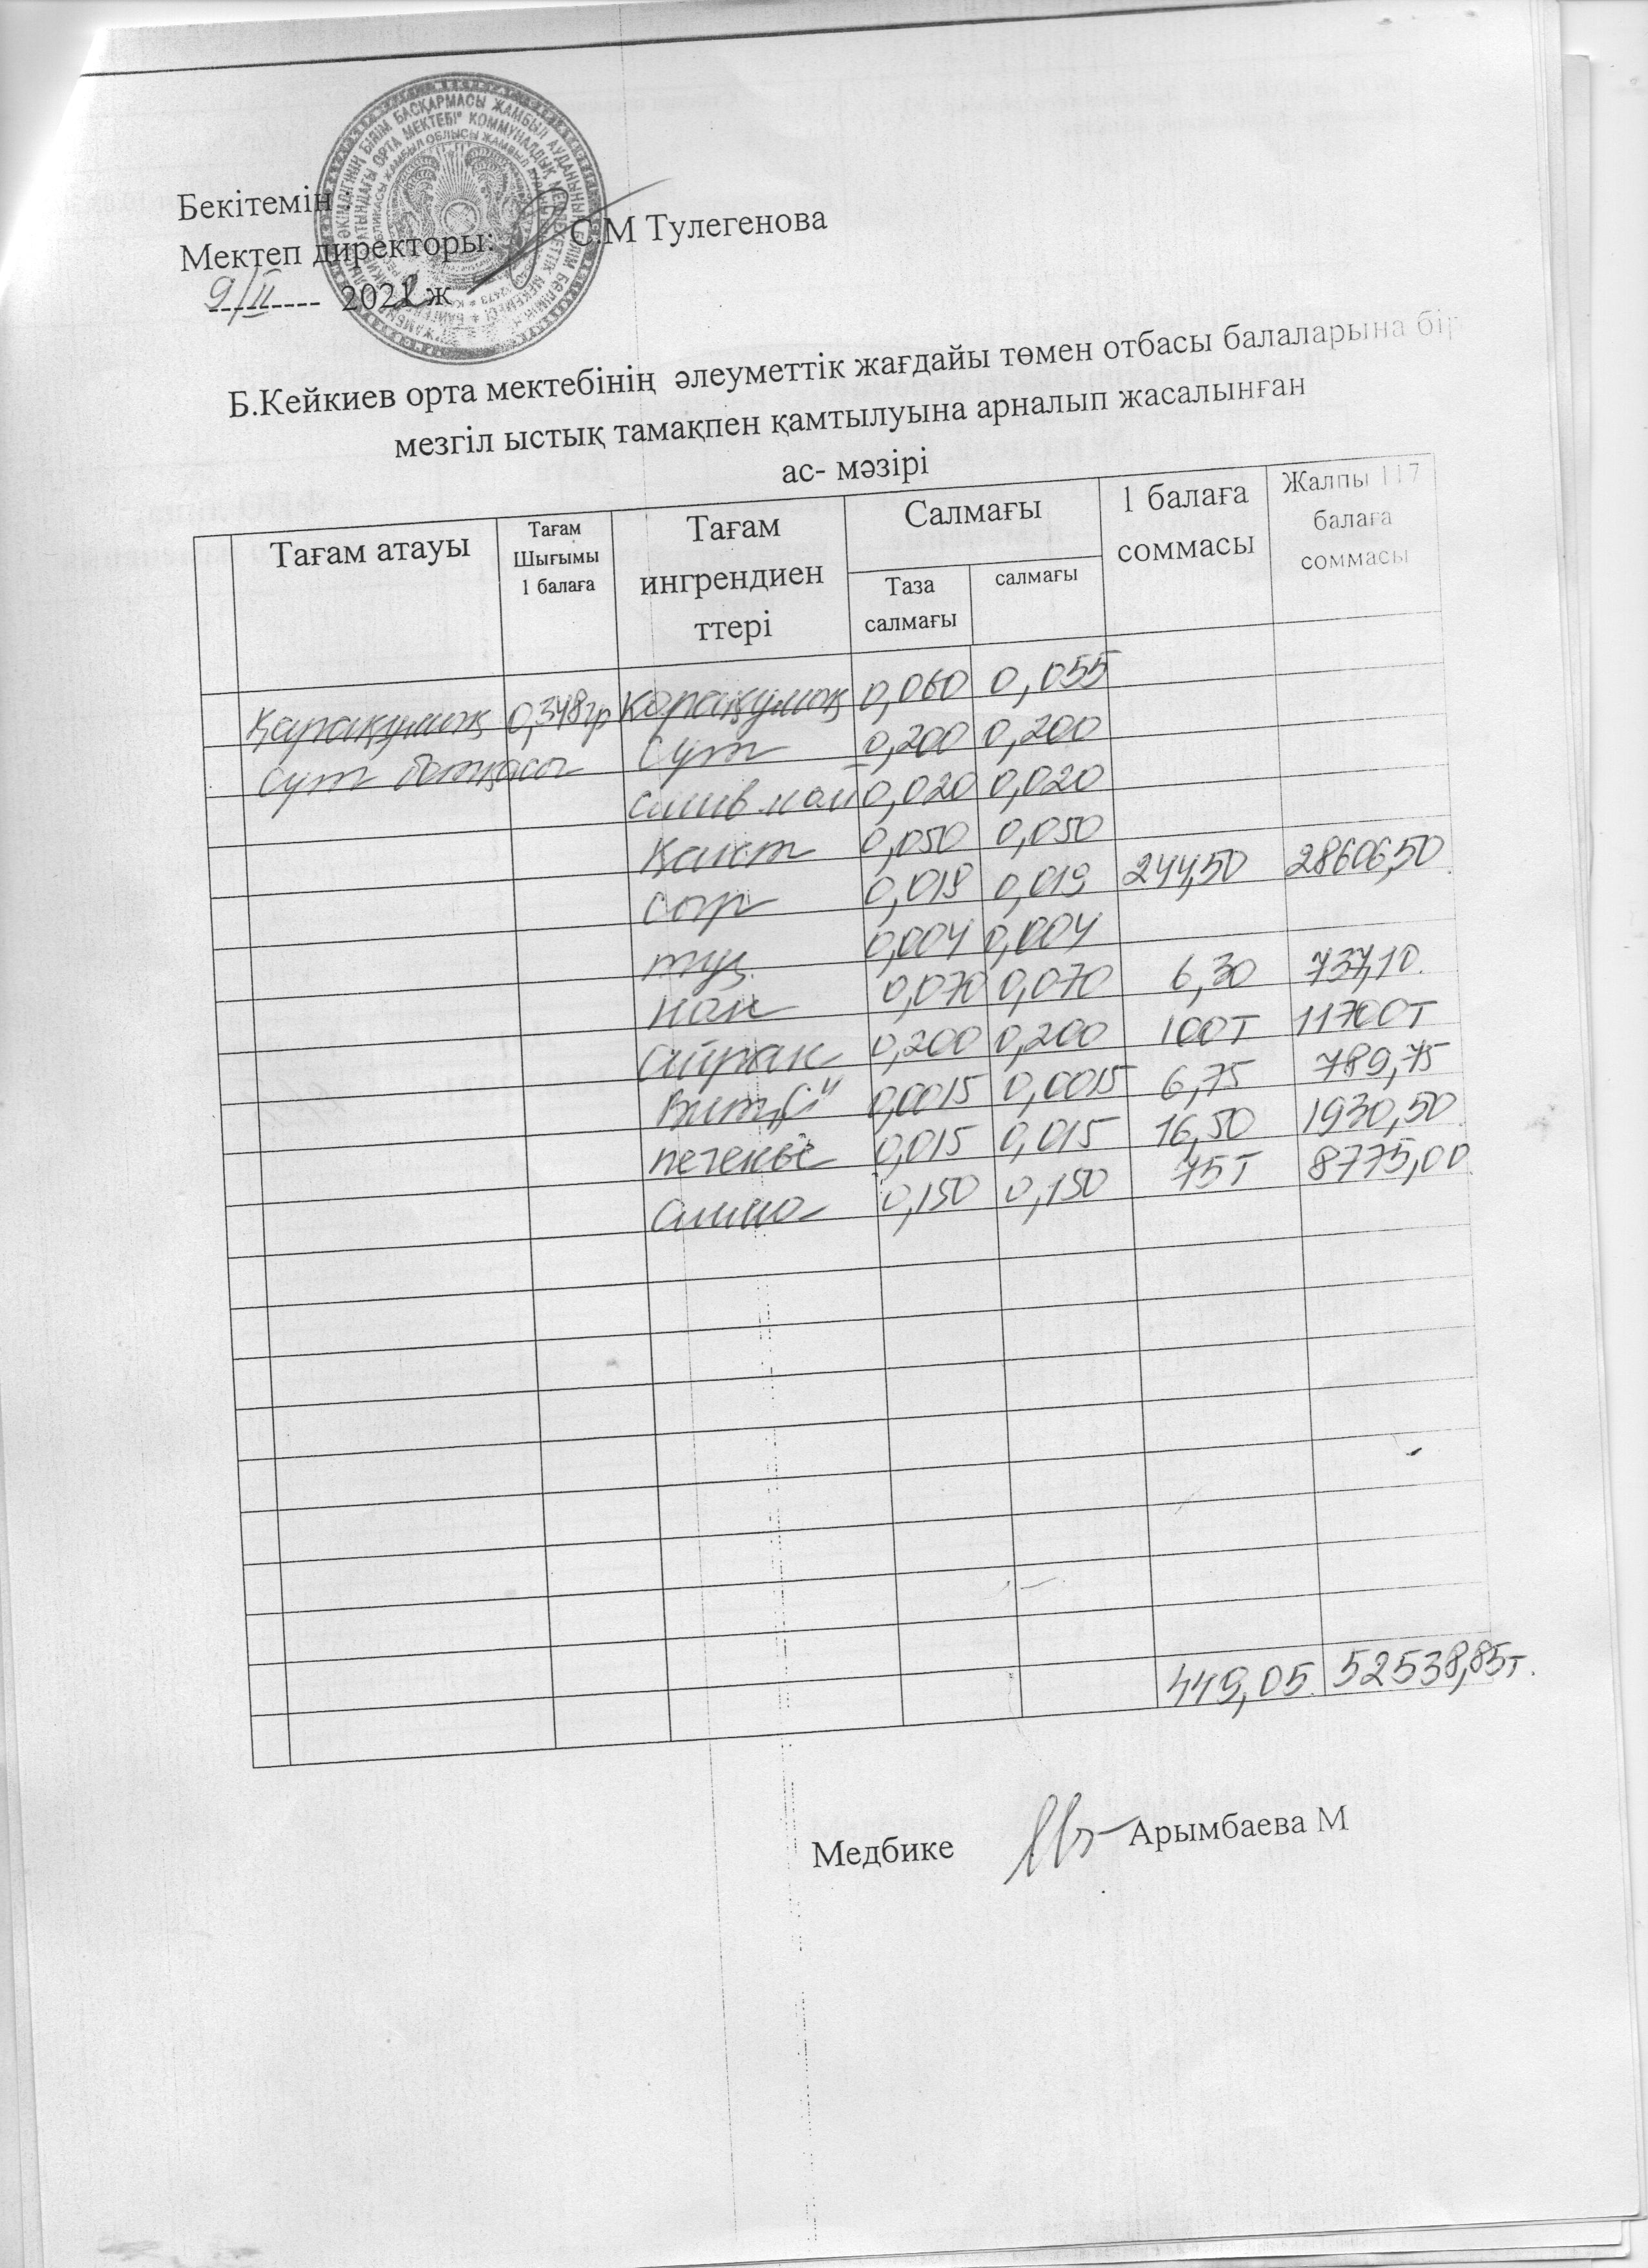 Бекітемін :
Мектеп директоры: С.М Тулегенова
9/II 2022 ж
Б.Кейкиев орта мектебінің әлеуметтік жағдайы төмен отбасы балаларына бір
мезгіл ыстық тамақпен қамтылуына арналып жасалынған
ас- мәзірі
Тағам атауы
Тағам
Шығымы
1 балаға
Тағам
ингрендиен
ттері
Салмағы
Таза
салмағы
салмағы
1 балаға
соммасы
Жалпы 117
балаға
соммасы
Қарақұмық 0,348гр Қарақұмық 0,060 0,055
Сүт ботқасы Сүт 0,200 0,200
слив май 0,020 0,020
Қант 0,050 0,050
сыр 0,019 0,019 244,50 28606,50
тұз 0,004 0,004
нан 0,070 0,070 6,30 737,10
айран 0,200 0,200 100т 11700т
Вит "С" 0,0015 0,0015 6,75 789,75
печенье 0,015 0,015 16,50 1930,50
алма 0,150 0,150 75т 8775,00
449,05 52538,85т.
Медбике Арымбаева М